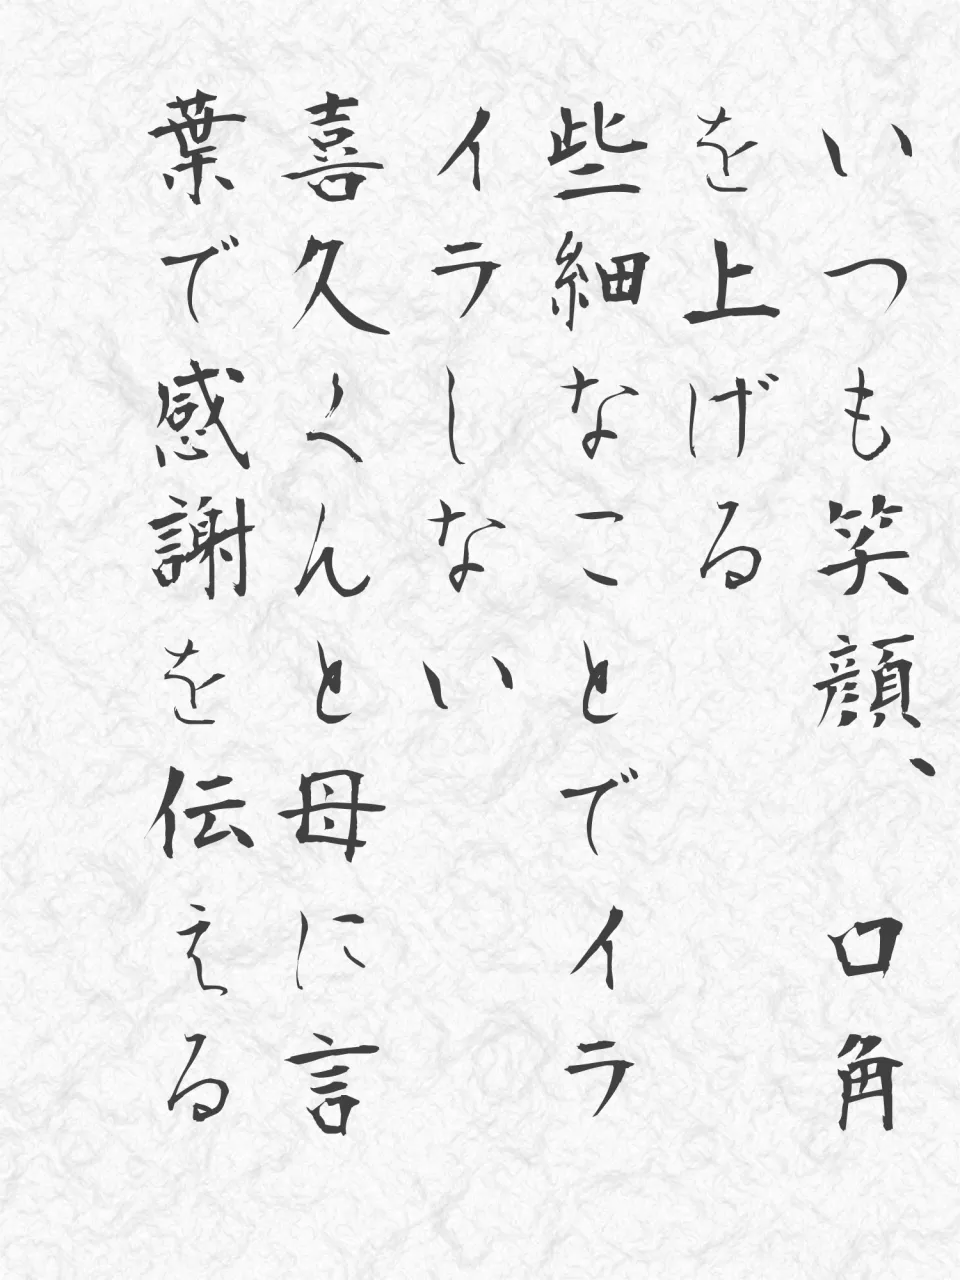 いつも笑顔、口角
を上げる
些細なことでイラ
イラしない
喜久くんと母に言
葉で感謝を伝える